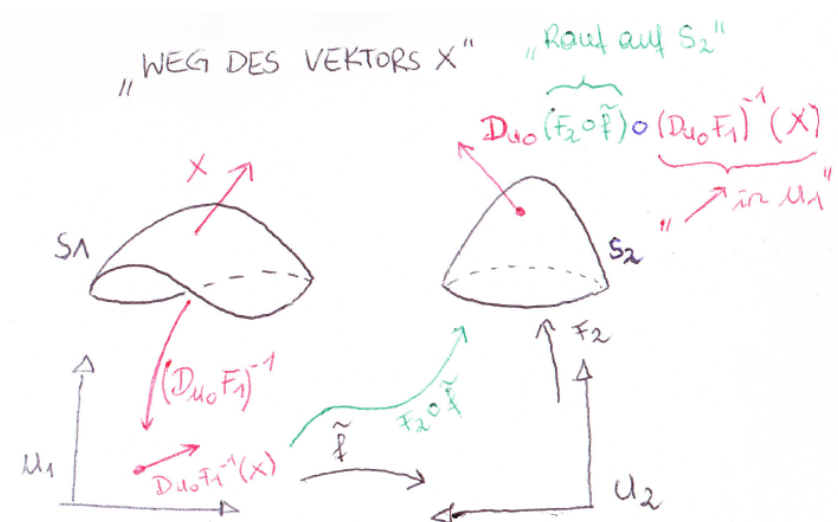 „WEG DES VEKTORS X“
„Rauf auf S₂“
D_{u₀}(F₂∘f̃)∘(D_{u₀}F₁)⁻¹(X)
„↗ in U₁“
X
S1
S₂
(D_{u₀}F₁)⁻¹
F₂
F₂∘f̃
f̃
U₁
D_{u₀}F₁⁻¹(X)
U₂